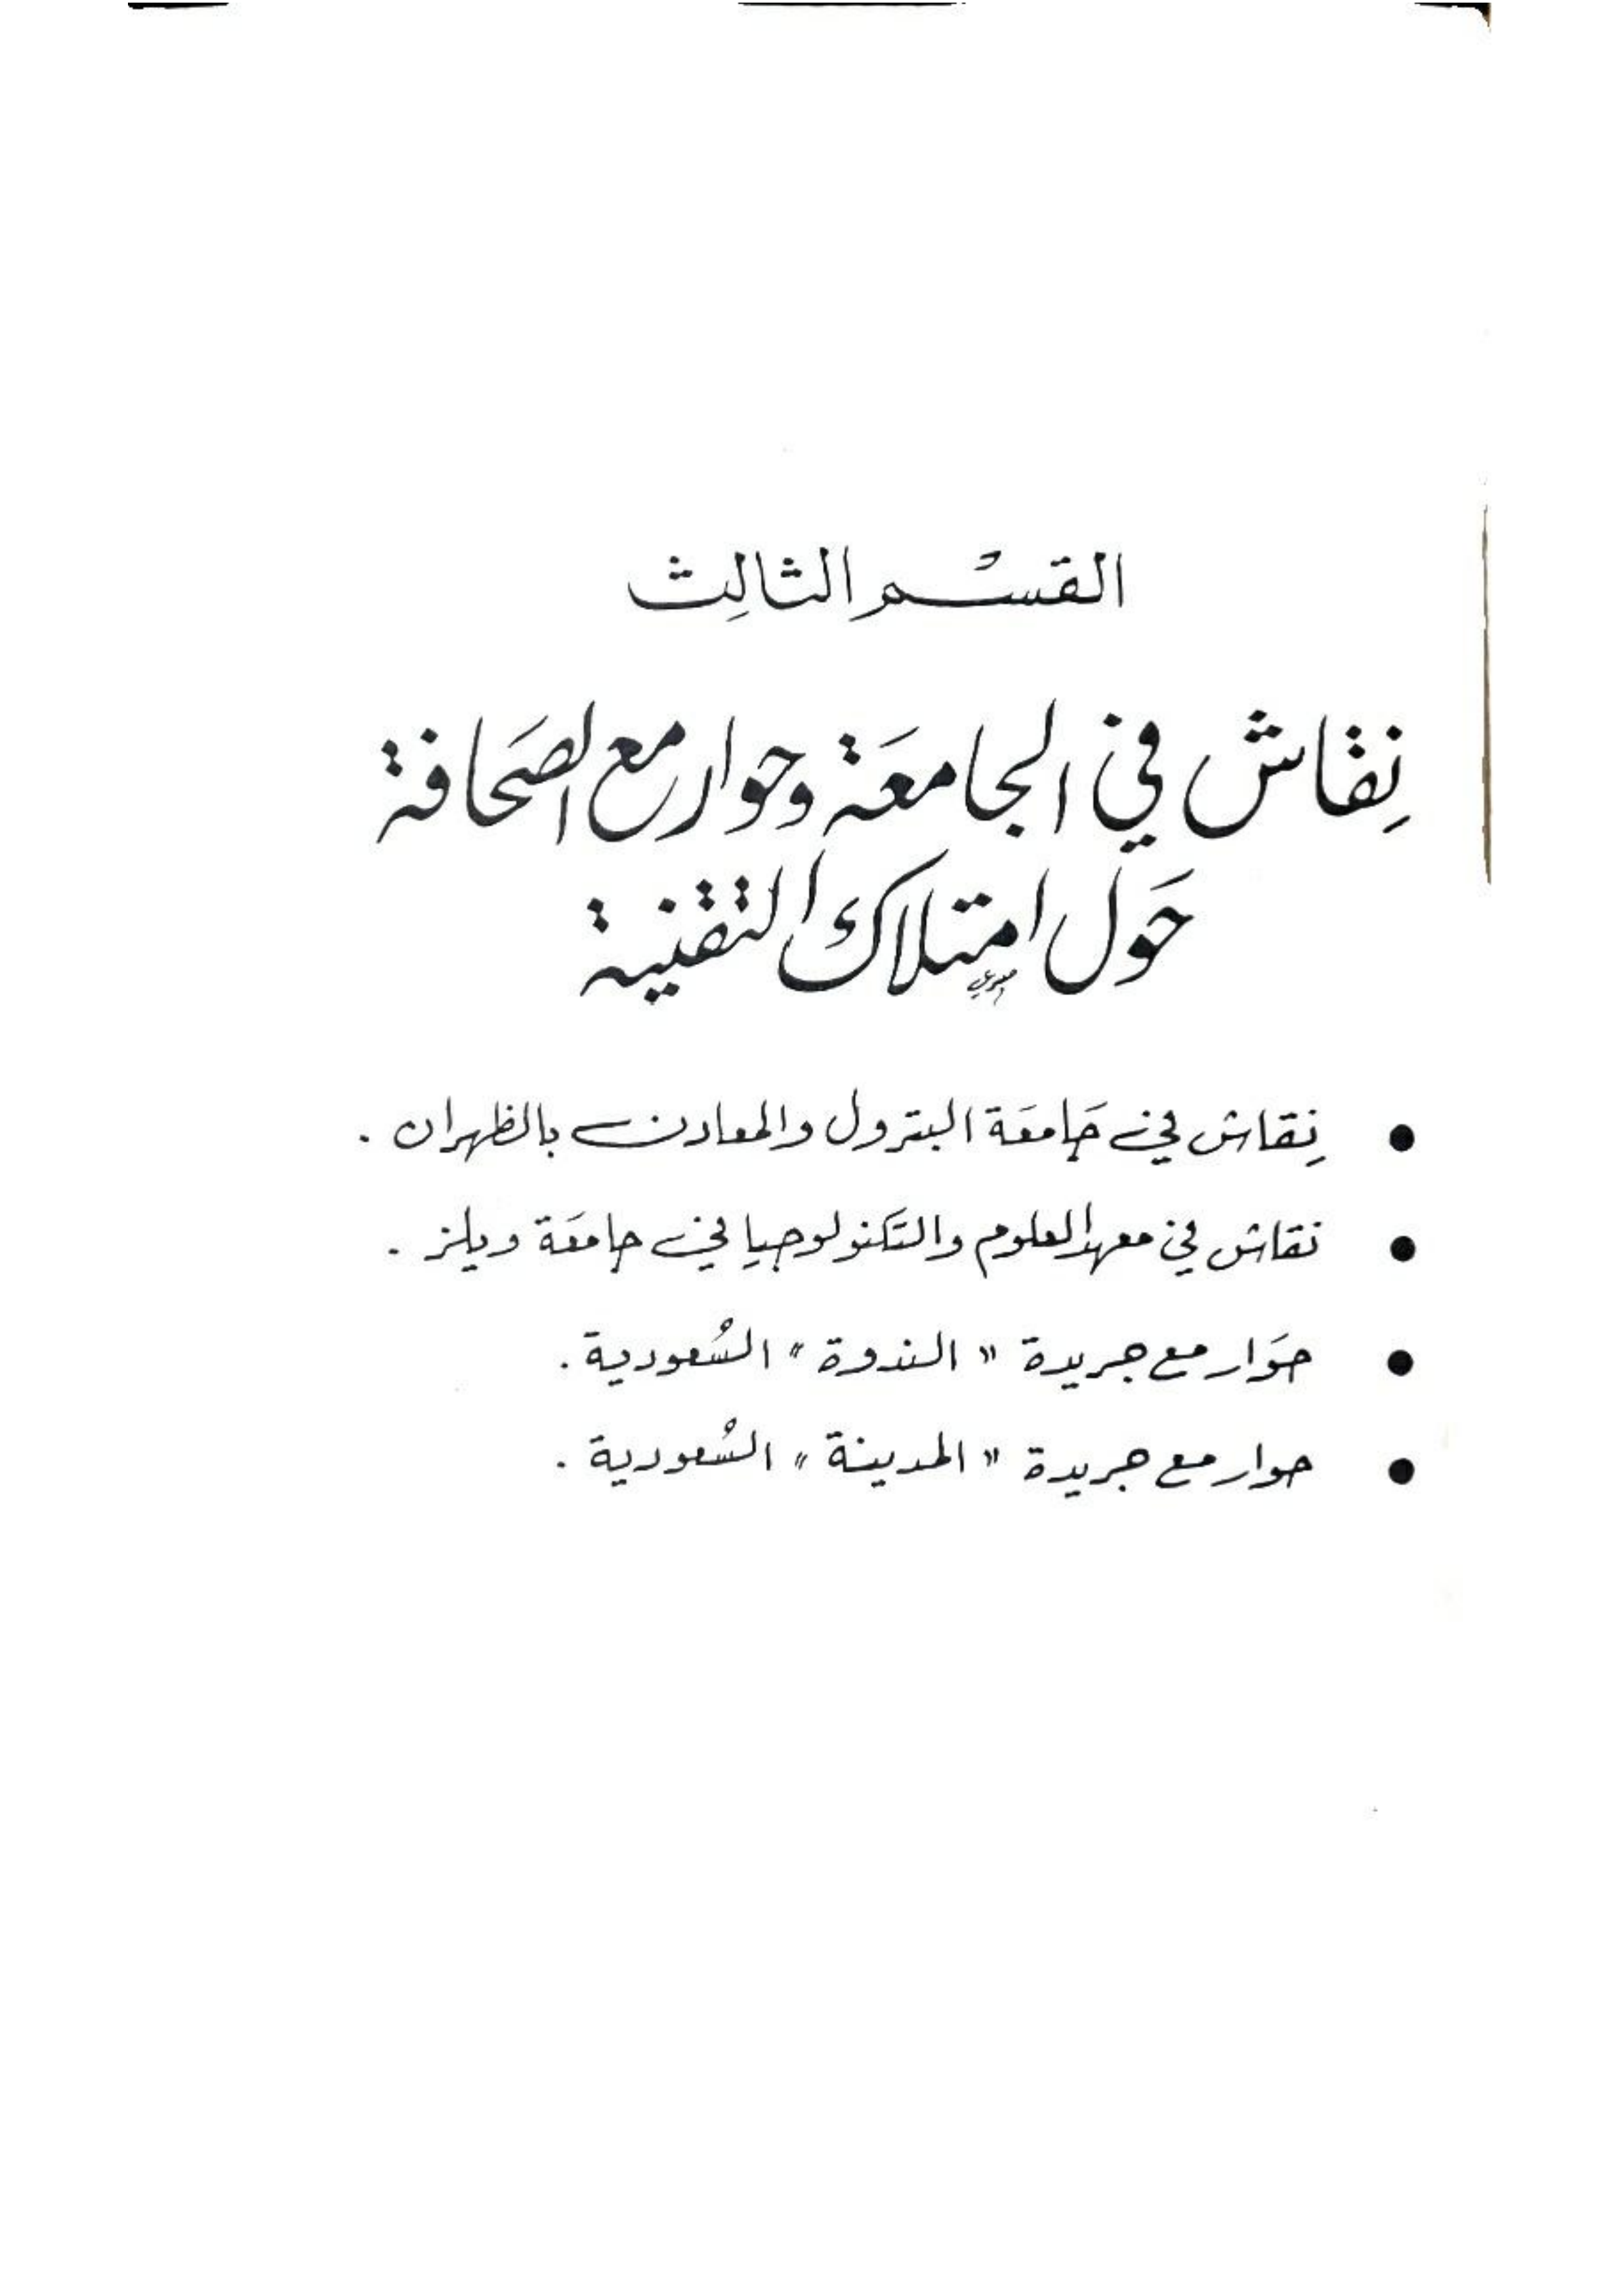 القسْم الثالِث
نِقاش في الجامعَة وحوار مع الصَحافة
حَول امتلاك التقنية
● نِقاش في جَامعَة البترول والمعادن بالظهران .
● نقاش في معهد العلوم والتكنولوجيا في جامعَة ويلز .
● حوَار مع جريدة « الندوة » السُعودية .
● حوار مع جريدة « المدينة » السُعودية .